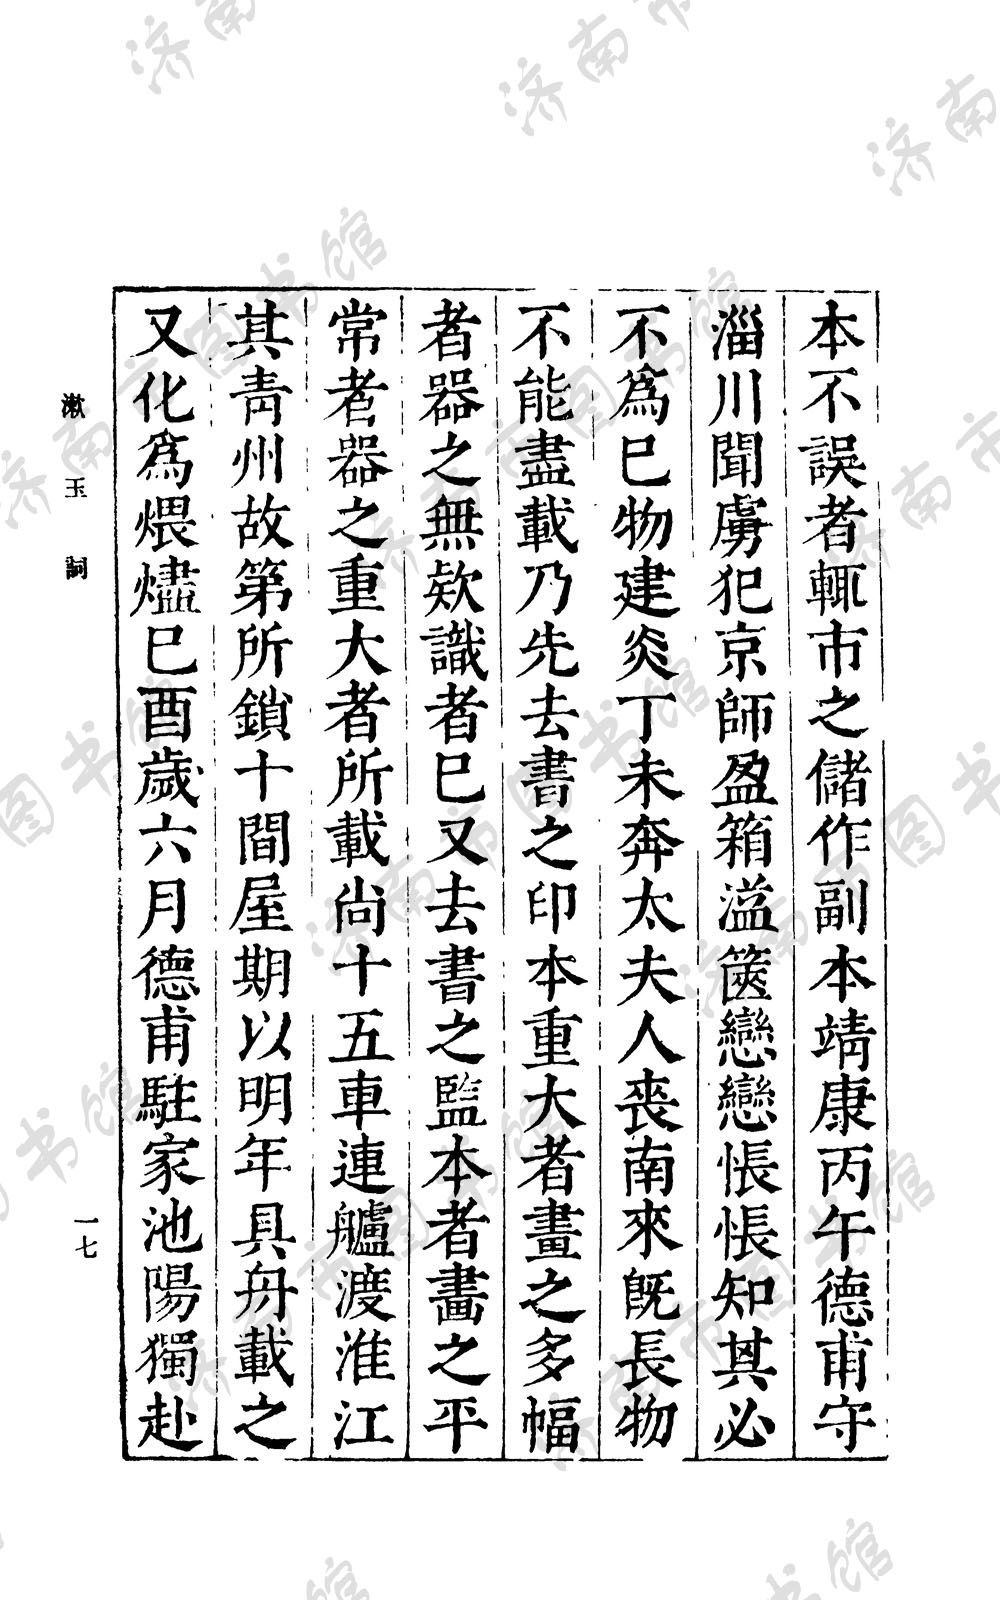 本不誤者輒市之儲作副本靖康丙午德甫守
淄川聞虜犯京師盈箱溢篋戀戀悵悵知其必
不爲已物建炎丁未奔太夫人喪南來旣長物
不能盡載乃先去書之印本重大者畫之多幅
者器之無欵識者已又去書之監本者畵之平
常者器之重大者所載尚十五車連艫渡淮江
其靑州故第所鎖十間屋期以明年具舟載之
又化爲煨燼已酉歲六月德甫駐家池陽獨赴
漱玉詞
一七
济南市图书馆